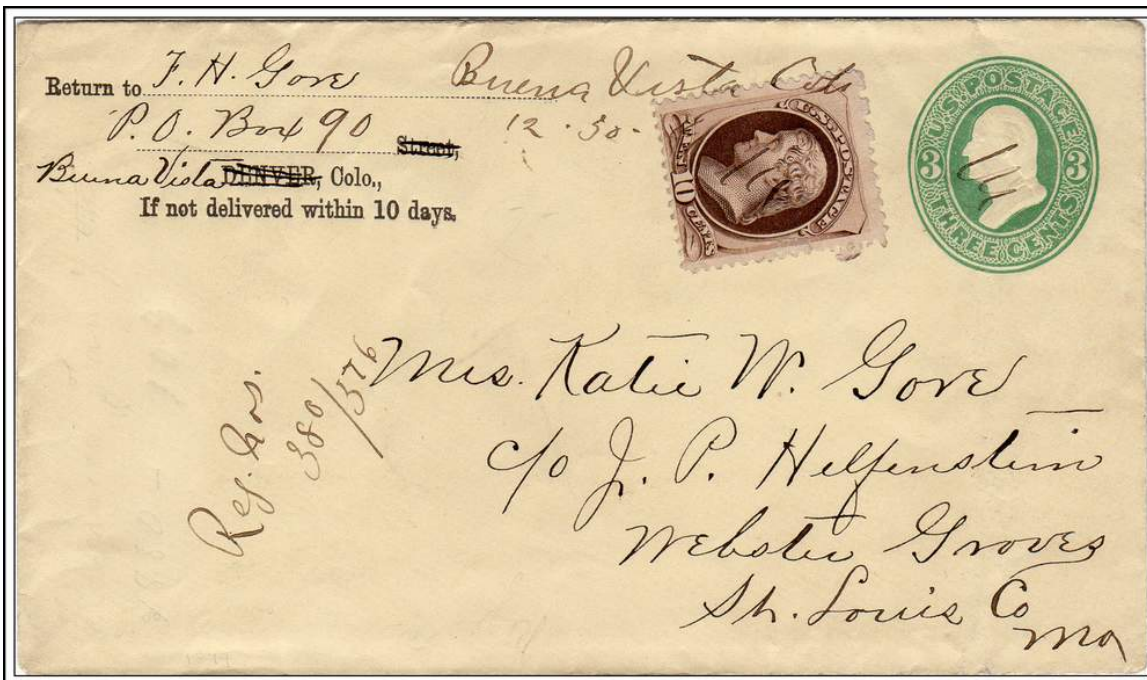 Return to F. H. Gove
P. O. Box 90 Street,
Buena Vista DENVER, Colo.,
If not delivered within 10 days.
Buena Vista Colo
12 . 30 .
10 CENTS
U.S. POSTAGE
3 3
THREE CENTS
Reg. Nos.
380/576
Mrs. Katie W. Gove
c/o J. P. Helfenstein
Webster Groves
St. Louis Co
Mo